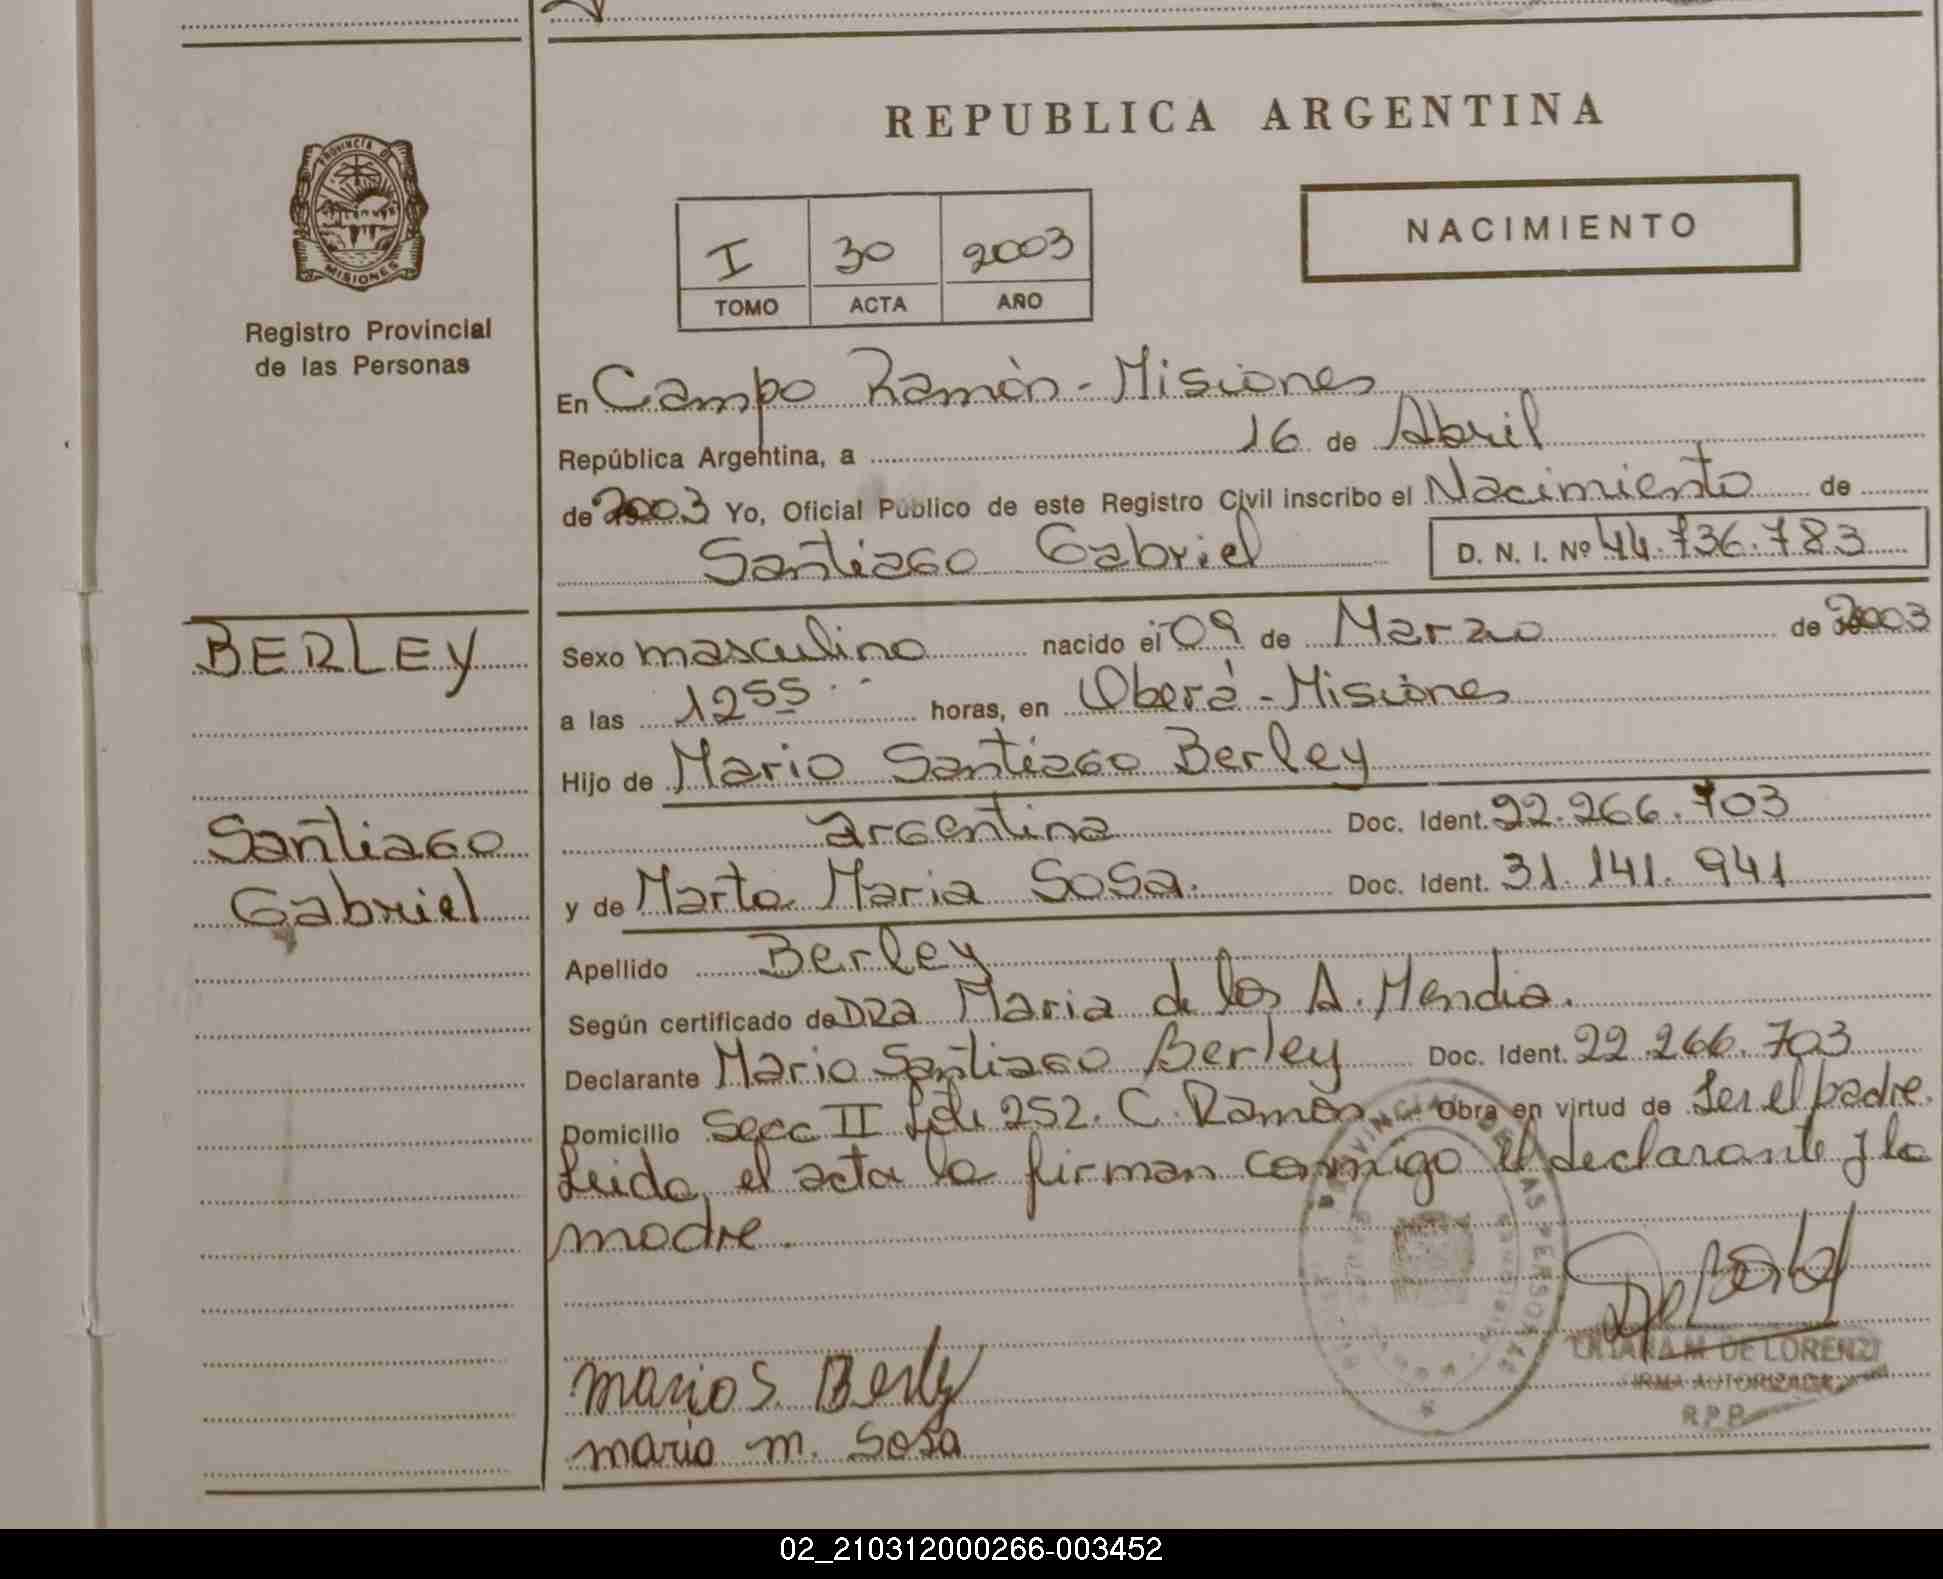 REPUBLICA ARGENTINA
PROVINCIA DE
MISIONES
Registro Provincial
de las Personas
I 30 2003
TOMO ACTA AÑO
NACIMIENTO
En Campo Ramón - Misiones
República Argentina, a 16 de Abril
de 2003 Yo, Oficial Público de este Registro Civil inscribo el Nacimiento de
Santiago Gabriel D. N. I. Nº 44.736.783
BERLEY
Santiago
Gabriel
Sexo masculino nacido el 09 de Marzo de 2003
a las 12 55 horas, en Oberá - Misiones
Hijo de Mario Santiago Berley
argentina Doc. Ident. 22.266.703
y de Marta Maria Sosa. Doc. Ident. 31.141.941
Apellido Berley
Según certificado de DRA Maria de los A. Mendia.
Declarante Mario Santiago Berley Doc. Ident. 22.266.703
Domicilio Secc II Lote 252. C. Ramón Obra en virtud de Ser el padre.
Leida, el acta la firman conmigo el declarante y la
madre.
DE LAS PERSONAS
Mario S. Berly
maria m. Sosa
LILIANA M. DE LORENZI
FIRMA AUTORIZADA
R.P.P.
02_210312000266-003452